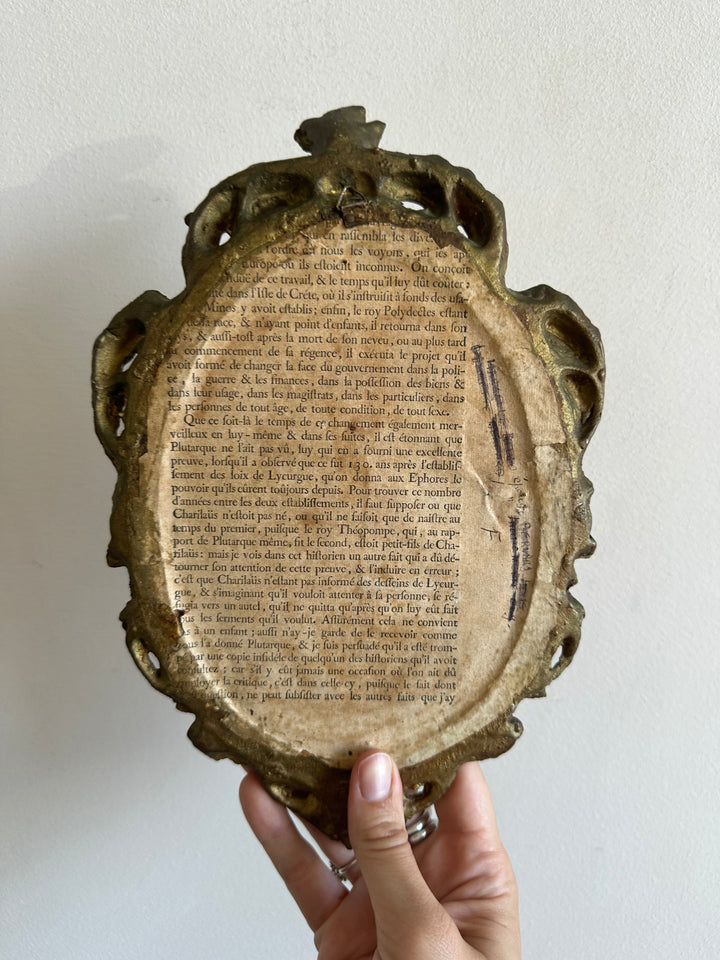 en raſſembla les dive
l'ordre nous les voyons, qui les ap-
Europe où ils eſtoient inconnus. On conçoit
de ce travail, & le temps qu'il luy dût coûter ;
dans l'Iſle de Créte, où il s'inſtruiſit à fonds des uſa-
Minos y avoit eſtablis ; enfin, le roy Polydectes eſtant
race, & n'ayant point d'enfants, il retourna dans ſon
& auſſi-toſt après la mort de ſon neveu, ou au plus tard
commencement de ſa régence, il exécuta le projet qu'il
avoit formé de changer la face du gouvernement dans la poli-
ce, la guerre & les finances, dans la poſſeſſion des biens &
dans leur uſage, dans les magiſtrats, dans les particuliers, dans
les perſonnes de tout âge, de toute condition, de tout ſexe.
Que ce ſoit-là le temps de ce changement également mer-
veilleux en luy-même & dans ſes ſuites, il eſt étonnant que
Plutarque ne l'ait pas vû, luy qui en a fourni une excellente
preuve, lorſqu'il a obſervé que ce fut 130. ans après l'eſtabliſ-
ſement des loix de Lycurgue, qu'on donna aux Ephores le
pouvoir qu'ils eûrent toûjours depuis. Pour trouver ce nombre
d'années entre les deux eſtabliſſements, il faut ſuppoſer ou que
Charilaüs n'eſtoit pas né, ou qu'il ne faiſoit que de naiſtre au
temps du premier, puiſque le roy Théopompe, qui, au rap-
port de Plutarque même, fit le ſecond, eſtoit petit-fils de Cha-
rilaüs : mais je vois dans cet hiſtorien un autre fait qui a dû dé-
tourner ſon attention de cette preuve, & l'induire en erreur ;
c'eſt que Charilaüs n'eſtant pas informé des deſſeins de Lycur-
gue, & s'imaginant qu'il vouloit attenter à ſa perſonne, ſe ré-
fugia vers un autel, qu'il ne quitta qu'après qu'on luy eût fait
tous les ſerments qu'il voulut. Aſſurément cela ne convient
pas à un enfant ; auſſi n'ay-je garde de le recevoir comme
nous l'a donné Plutarque, & je ſuis perſuadé qu'il a eſté trom-
pé par une copie infidéle de quelqu'un des hiſtoriens qu'il avoit
conſultez ; car s'il y eût jamais une occaſion où l'on ait dû
employer la critique, c'eſt dans celle-cy, puiſque le fait dont
queſtion, ne peut ſubſiſter avec les autres faits que j'ay